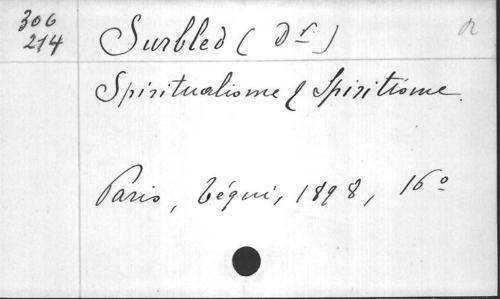 306
214
Surbled (Dr)
Spiritualisme & Spiritisme.
Paris, Téqui, 1898, 16º